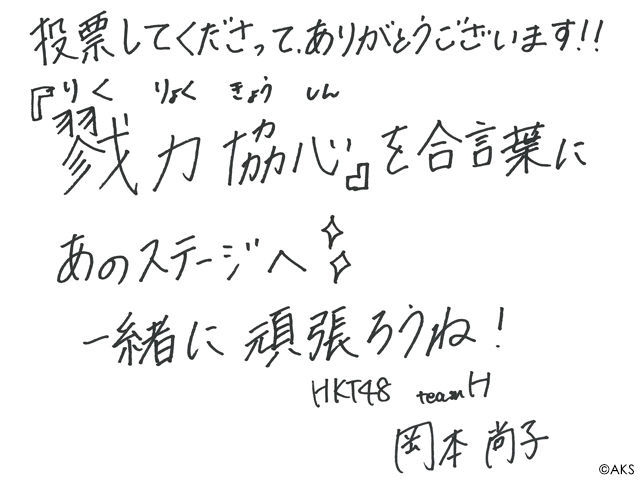 投票してくださって、ありがとうございます!!
りく りょく きょう しん
『戮力協心』を合言葉に
あのステージへ
一緒に頑張ろうね!
HKT48 teamH
岡本尚子
©AKS